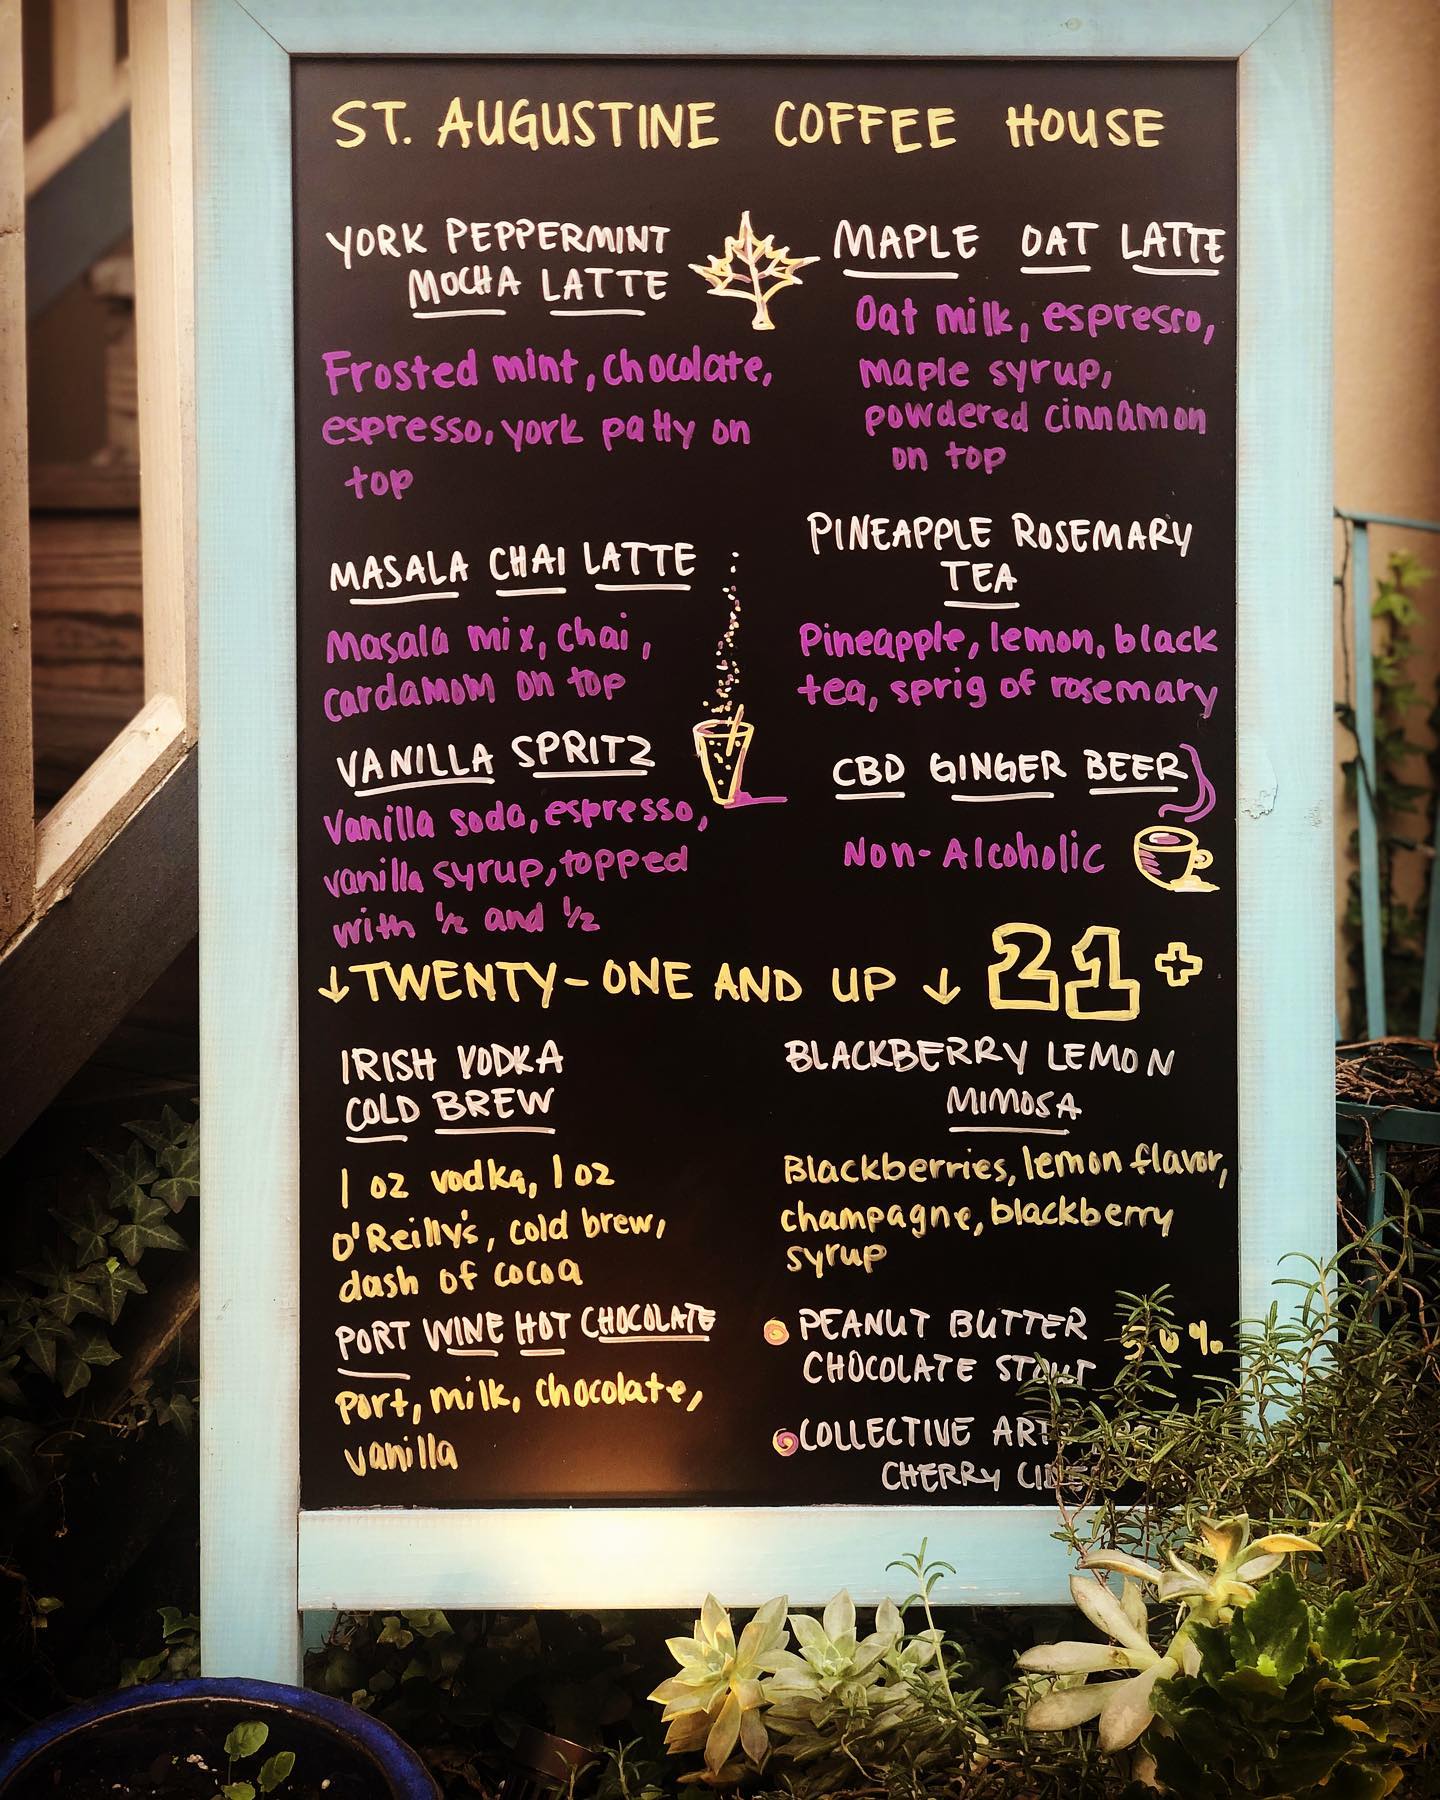 ST. AUGUSTINE COFFEE HOUSE
YORK PEPPERMINT
MOCHA LATTE
Frosted mint, chocolate,
espresso, york patty on
top
MAPLE OAT LATTE
Oat milk, espresso,
maple syrup,
powdered cinnamon
on top
MASALA CHAI LATTE
Masala mix, chai,
cardamom on top
PINEAPPLE ROSEMARY
TEA
Pineapple, lemon, black
tea, sprig of rosemary
VANILLA SPRITZ
Vanilla soda, espresso,
vanilla syrup, topped
with 1/2 and 1/2
CBD GINGER BEER
Non-Alcoholic
↓TWENTY-ONE AND UP ↓ 21+
IRISH VODKA
COLD BREW
1 oz vodka, 1 oz
O'Reilly's, cold brew,
dash of cocoa
BLACKBERRY LEMON
MIMOSA
Blackberries, lemon flavor,
champagne, blackberry
syrup
PORT WINE HOT CHOCOLATE
Port, milk, chocolate,
vanilla
PEANUT BUTTER
CHOCOLATE STOUT
COLLECTIVE ARTS
CHERRY CIDER